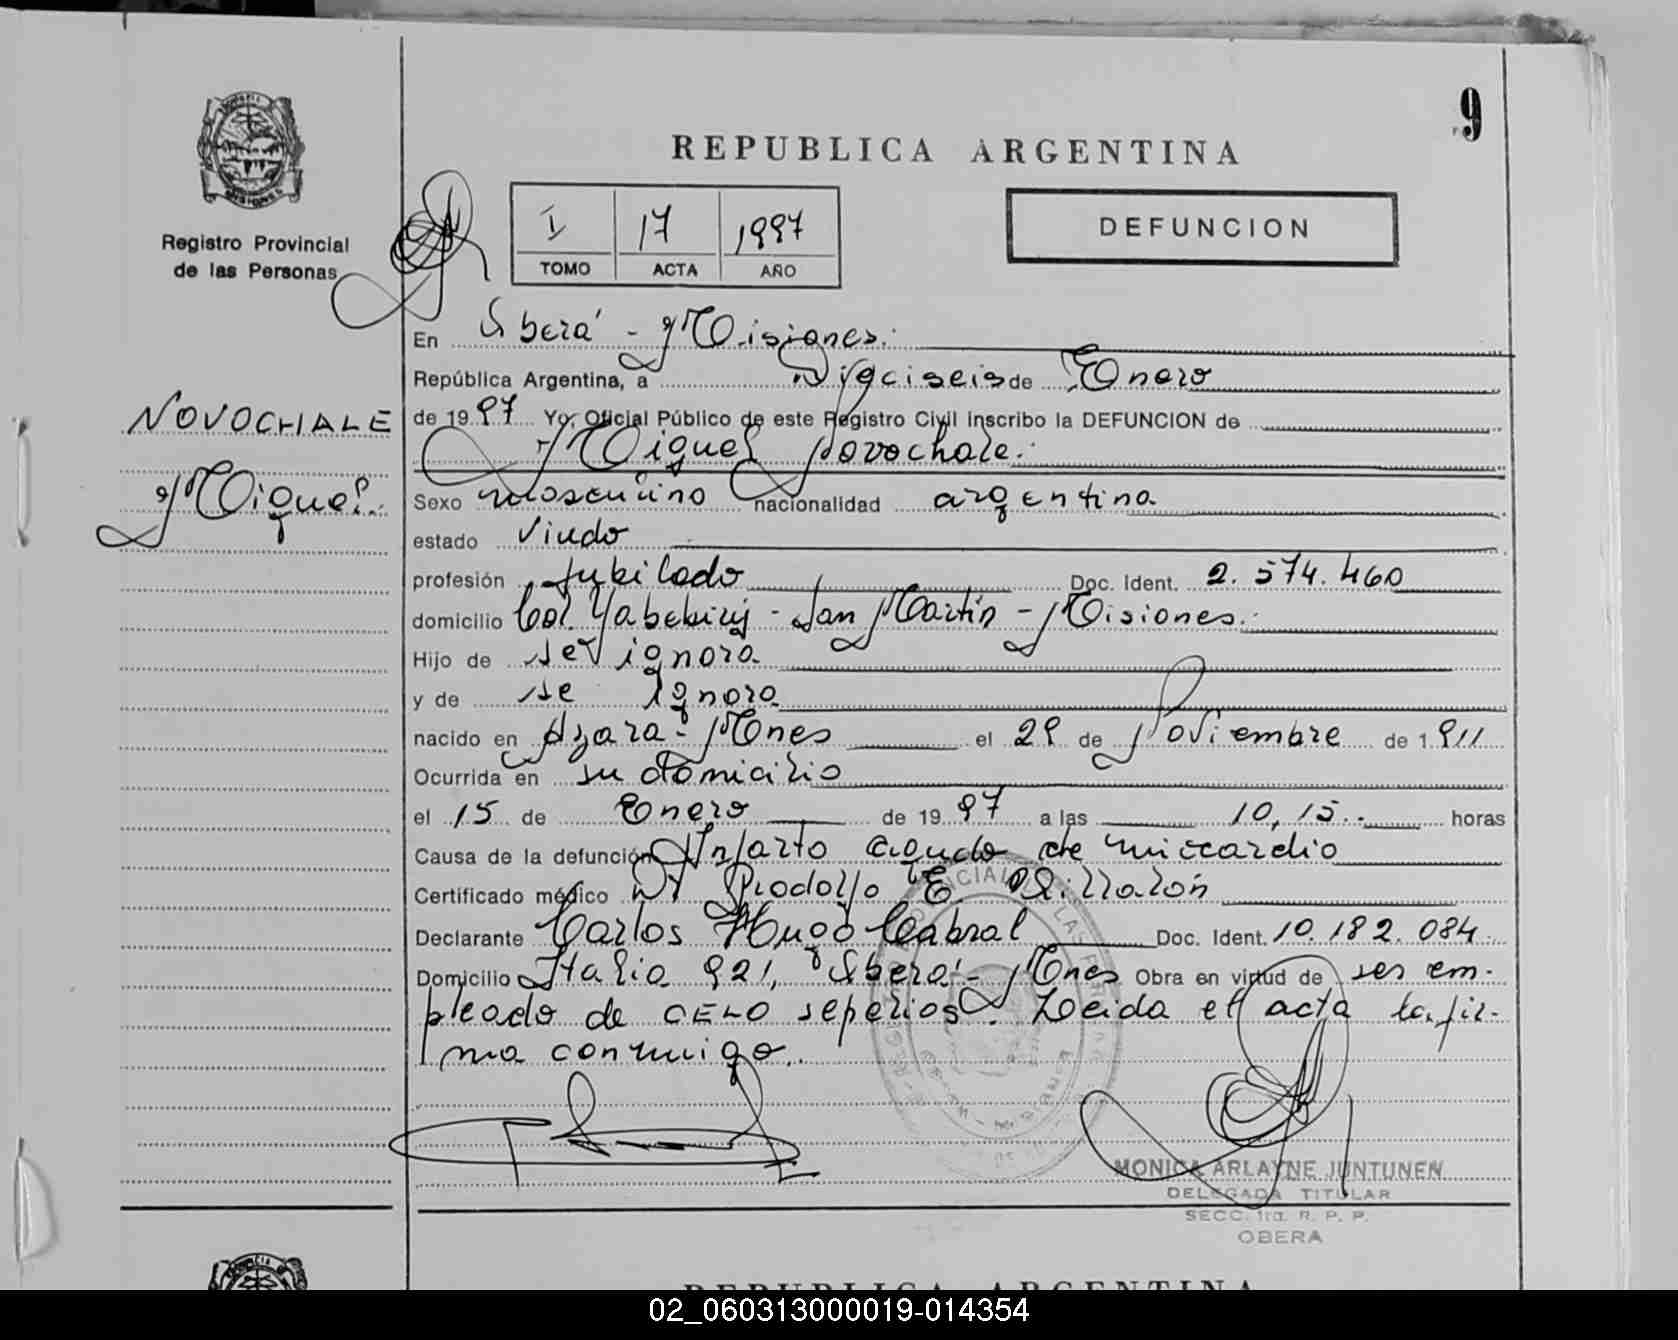 9
REPUBLICA ARGENTINA
I 17 1997
TOMO ACTA AÑO
DEFUNCION
Registro Provincial
de las Personas
En Oberá - Misiones.
República Argentina, a Dieciseis de Enero
NOVOCHALE
de 1997 Yo, Oficial Público de este Registro Civil inscribo la DEFUNCION de
Miguel Novochale.
Miguel.
Sexo masculino nacionalidad argentina
estado viudo
profesión Jubilado Doc. Ident. 2.574.460
domicilio Col. Yabebiry - San Martín - Misiones.
Hijo de se ignora
y de se ignora
nacido en Azara - Mnes el 29 de Noviembre de 1911
Ocurrida en su domicilio
el 15 de Enero de 1997 a las 10,15.. horas
Causa de la defunción Infarto agudo de miocardio
Certificado médico Dr Rodolfo E. Villalón
Declarante Carlos Hugo Cabral Doc. Ident. 10.182.084
Domicilio Italia 921, Oberá - Mnes Obra en virtud de ser em-
pleado de CELO sepelios. Leida el acta la fir-
ma conmigo.
MONICA ARLAYNE JUNTUNEN
DELEGADA TITULAR
SECC. 1ra. R. P. P.
OBERA
REPUBLICA ARGENTINA
02_060313000019-014354